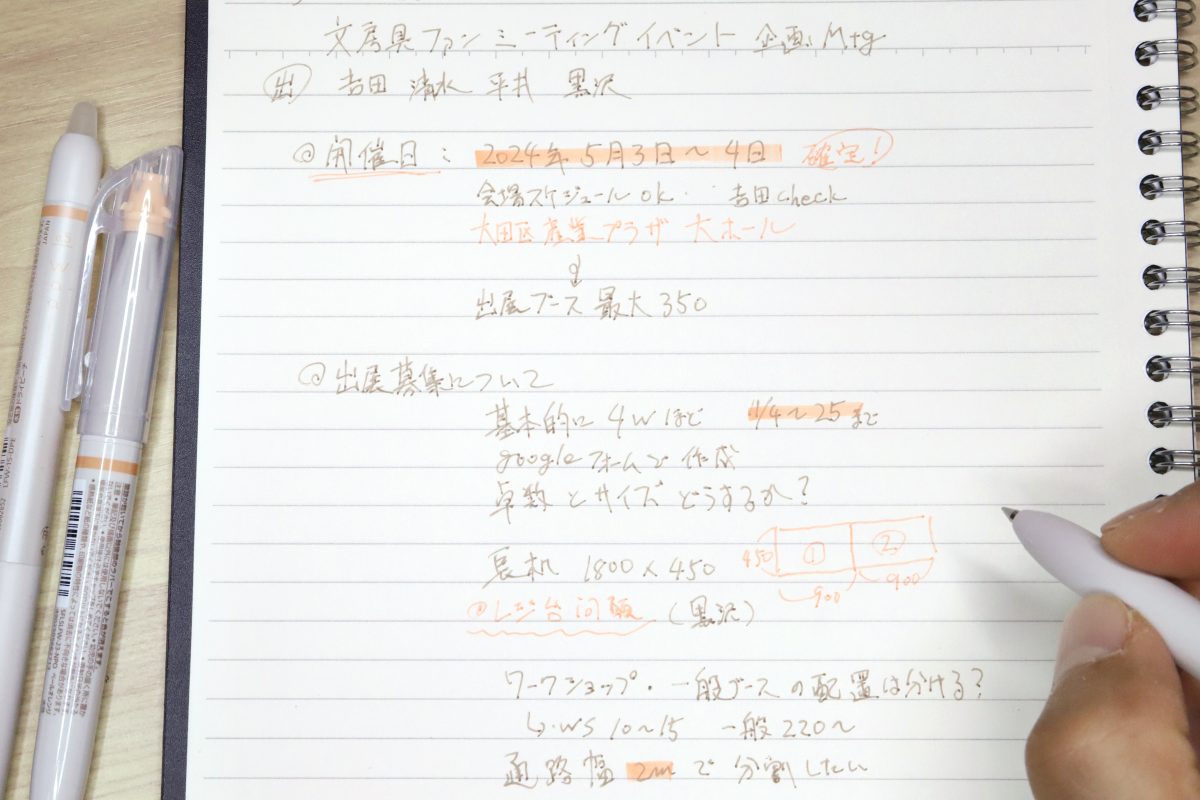 文房具ファンミーティングイベント 企画Mtg
出 吉田 清水 平井 黒沢
開催日: 2024年5月3日~4日 確定!
会場スケジュールOK‥吉田check
大田区産業プラザ 大ホール
出展ブース最大350
出展募集について
基本的に4wほど 1/4~25まで
googleフォームで作成
卓数とサイズどうするか?
長机 1800×450
450 ① ②
900 900
レジ台問題 (黒沢)
ワークショップ・一般ブースの配置は分ける?
WS 10~15 一般220~
通路幅2mで分割したい